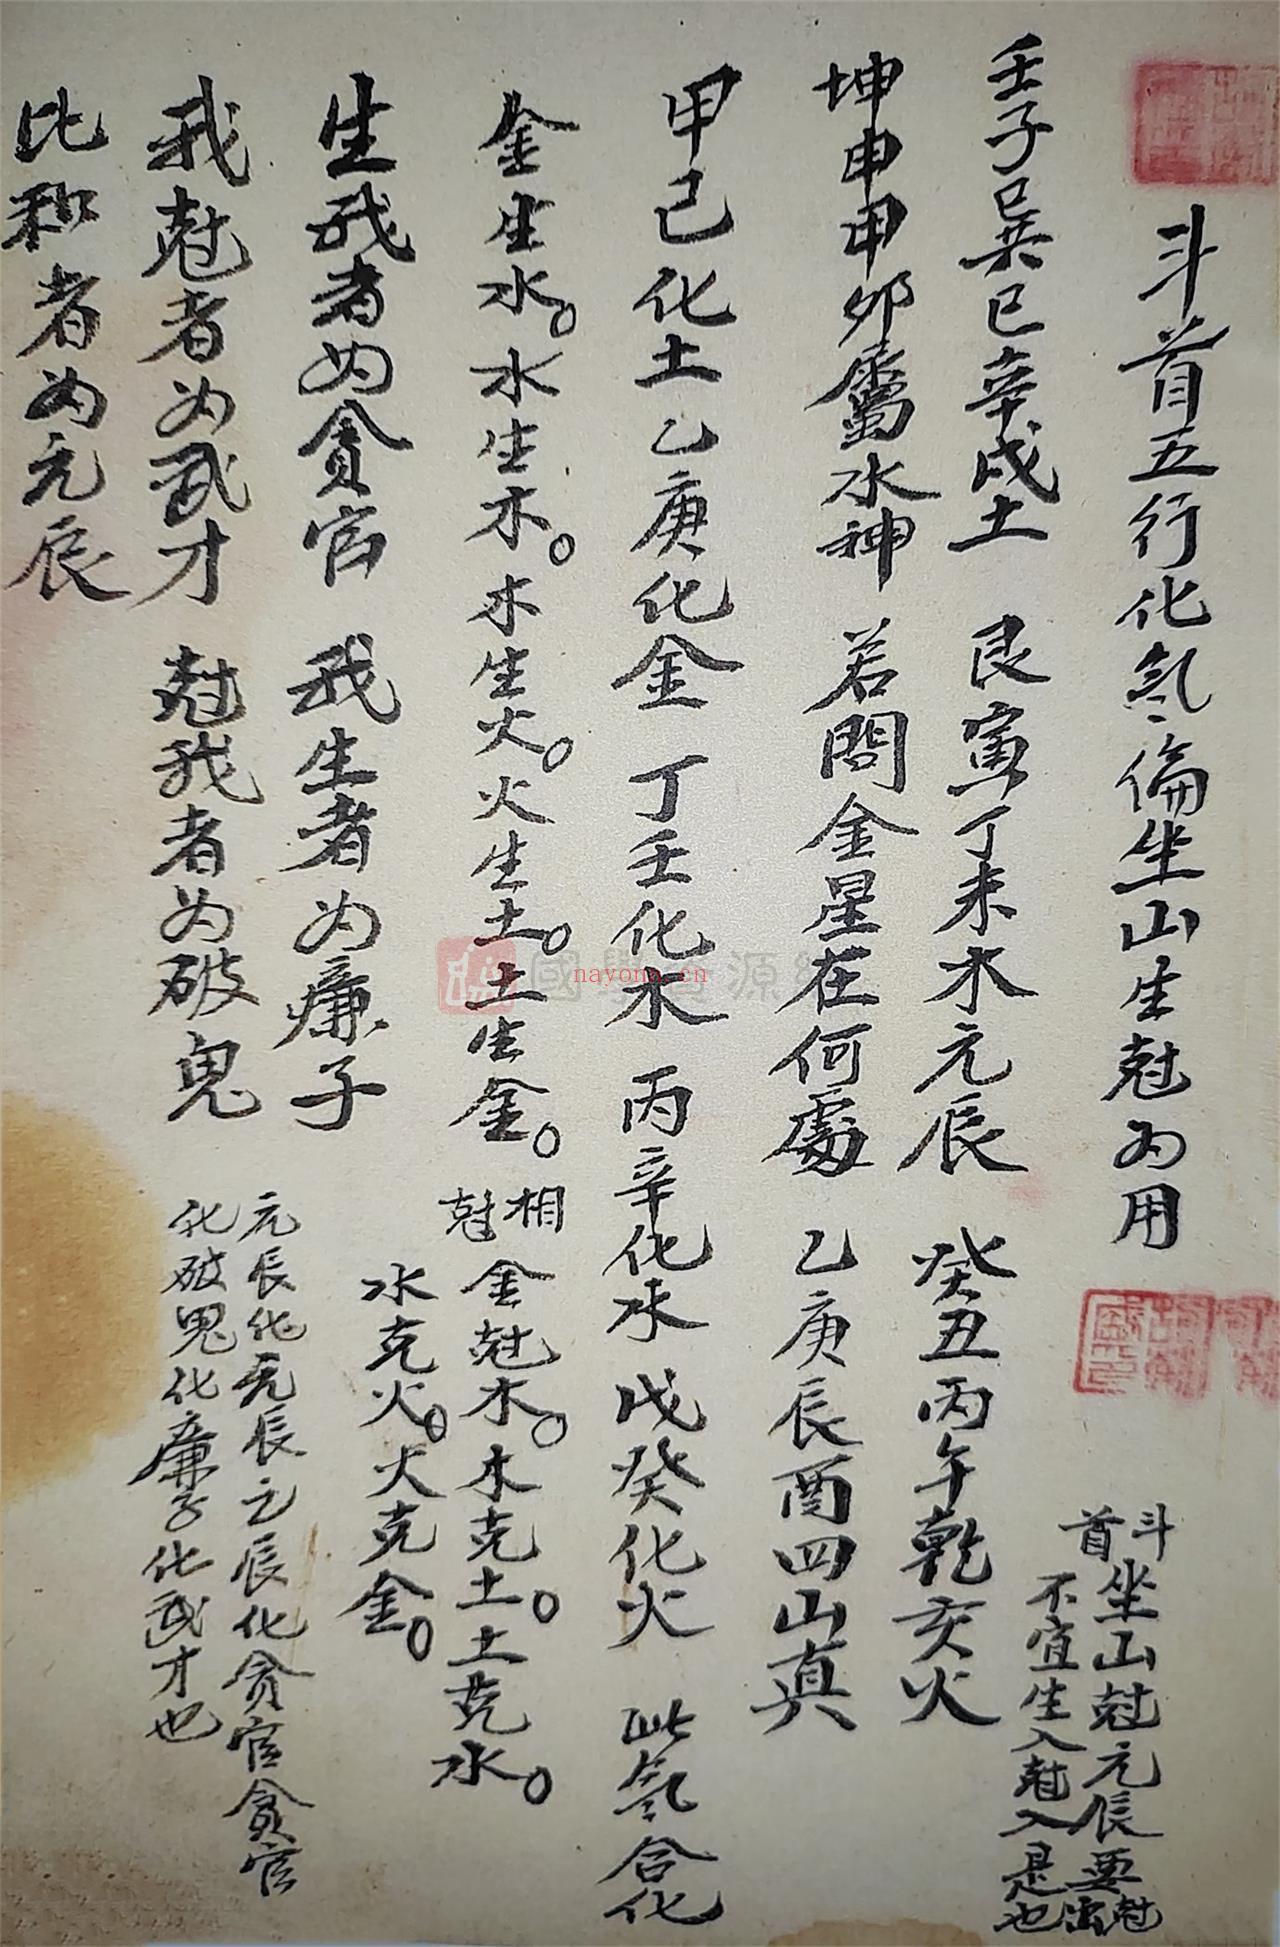 斗首五行化気倫坐山生尅为用
斗首坐山尅元辰要尅出
不宜生入尅入是也
壬子巽巳辛戌土 艮寅丁未木元辰 癸丑丙午乾亥火
坤申甲卯屬水神 若問金星在何處 乙庚辰酉四山真
甲己化土乙庚化金 丁壬化木 丙辛化水 戊癸化火 此氣合化
金生水。水生木。木生火。火生土。土生金。
相尅 金尅木。木克土。土克水。
水克火。火克金。
生我者为貪官 我生者为廉子
我尅者为武才 尅我者为破鬼
比和者为元辰
元辰化元辰元辰化貪官貪官
化破鬼化廉子化武才也
國學資源網
nayona.cn